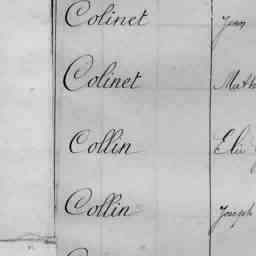 Colinet Jean
Colinet Math
Collin Elie
Collin Joseph